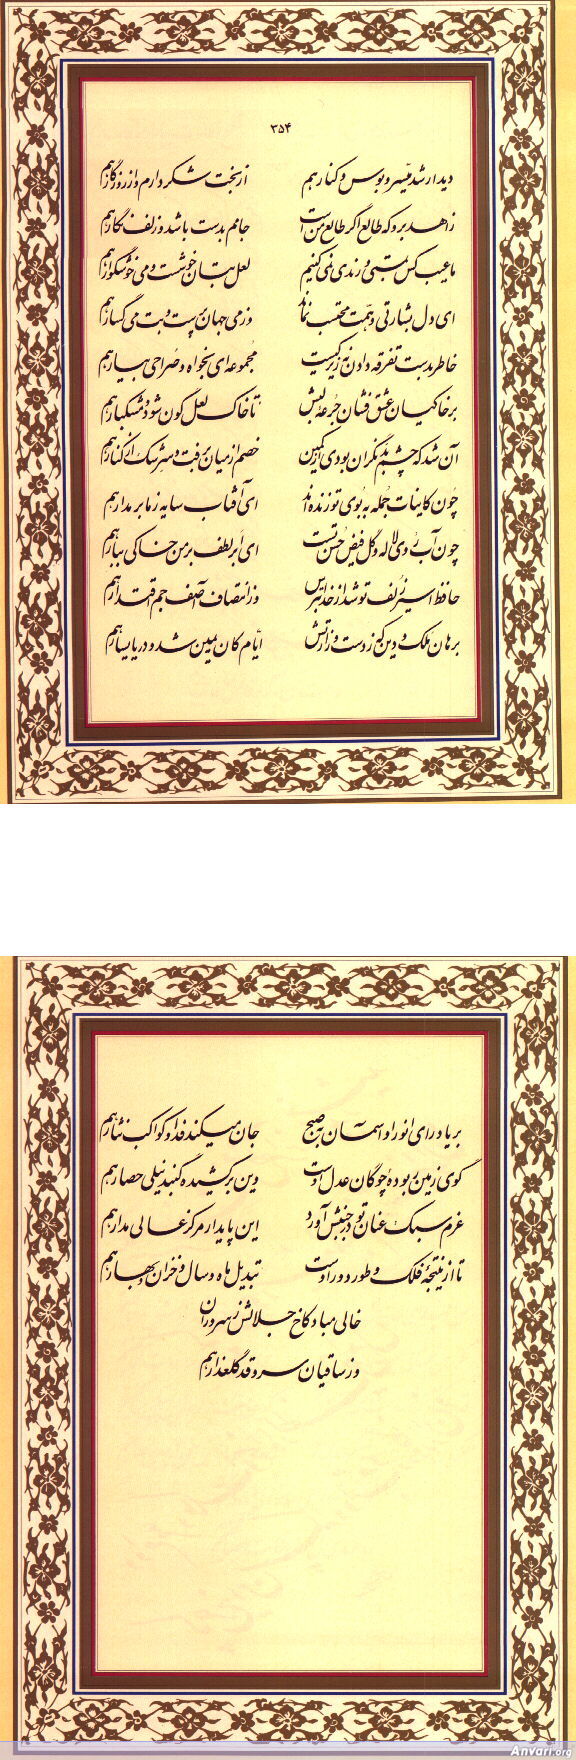 ۳۵۴
دیدار شد میسر و بوس و کنار هم از بخت شکر دارم و از روزگار هم
زاهد برو که طالع اگر طالع من است جامم بدست باشد و زلف نگار هم
ما عیب کس بمستی و رندی نمی کنیم لعل بتان خوشست و می خوشگوار هم
ای دل بشارتی دهمت محتسب نماند وز می جهان پرست و بت می گسار هم
خاطر بدست تفرقه دادن نه زیرکیست مجموعه ای بخواه و صراحی بیار هم
بر خاکیان عشق فشان جرعه لبش تا خاک لعل گون شود و مشکبار هم
آن شد که چشم بد نگران بودی از کمین خصم از میان برفت و سرشک از کنار هم
چون کاینات جمله به بوی تو زنده اند ای آفتاب سایه ز ما بر مدار هم
چون آب روی لاله و گل فیض حسن تست ای ابر لطف بر من خاکی ببار هم
حافظ اسیر زلف تو شد از خدا بترس وز انتصاف آصف جم اقتدار هم
برهان ملک و دین که ز دست وزارتش ایام کان یمین شد و دریا یسار هم
بر یاد رای انور او آسمان به صبح جان میکند فدا و کواکب نثار هم
گوی زمین ربوده چوگان عدل اوست وین برکشیده گنبد نیلی حصار هم
عزم سبک عنان تو در جنبش آورد این پایدار مرکز عالی مدار هم
تا از نتیجه فلک و طور دور اوست تبدیل ماه و سال و خزان و بهار هم
خالی مباد کاخ جلالش ز سروران
وز ساقیان سرو قد گلعذار هم
Anvari.org